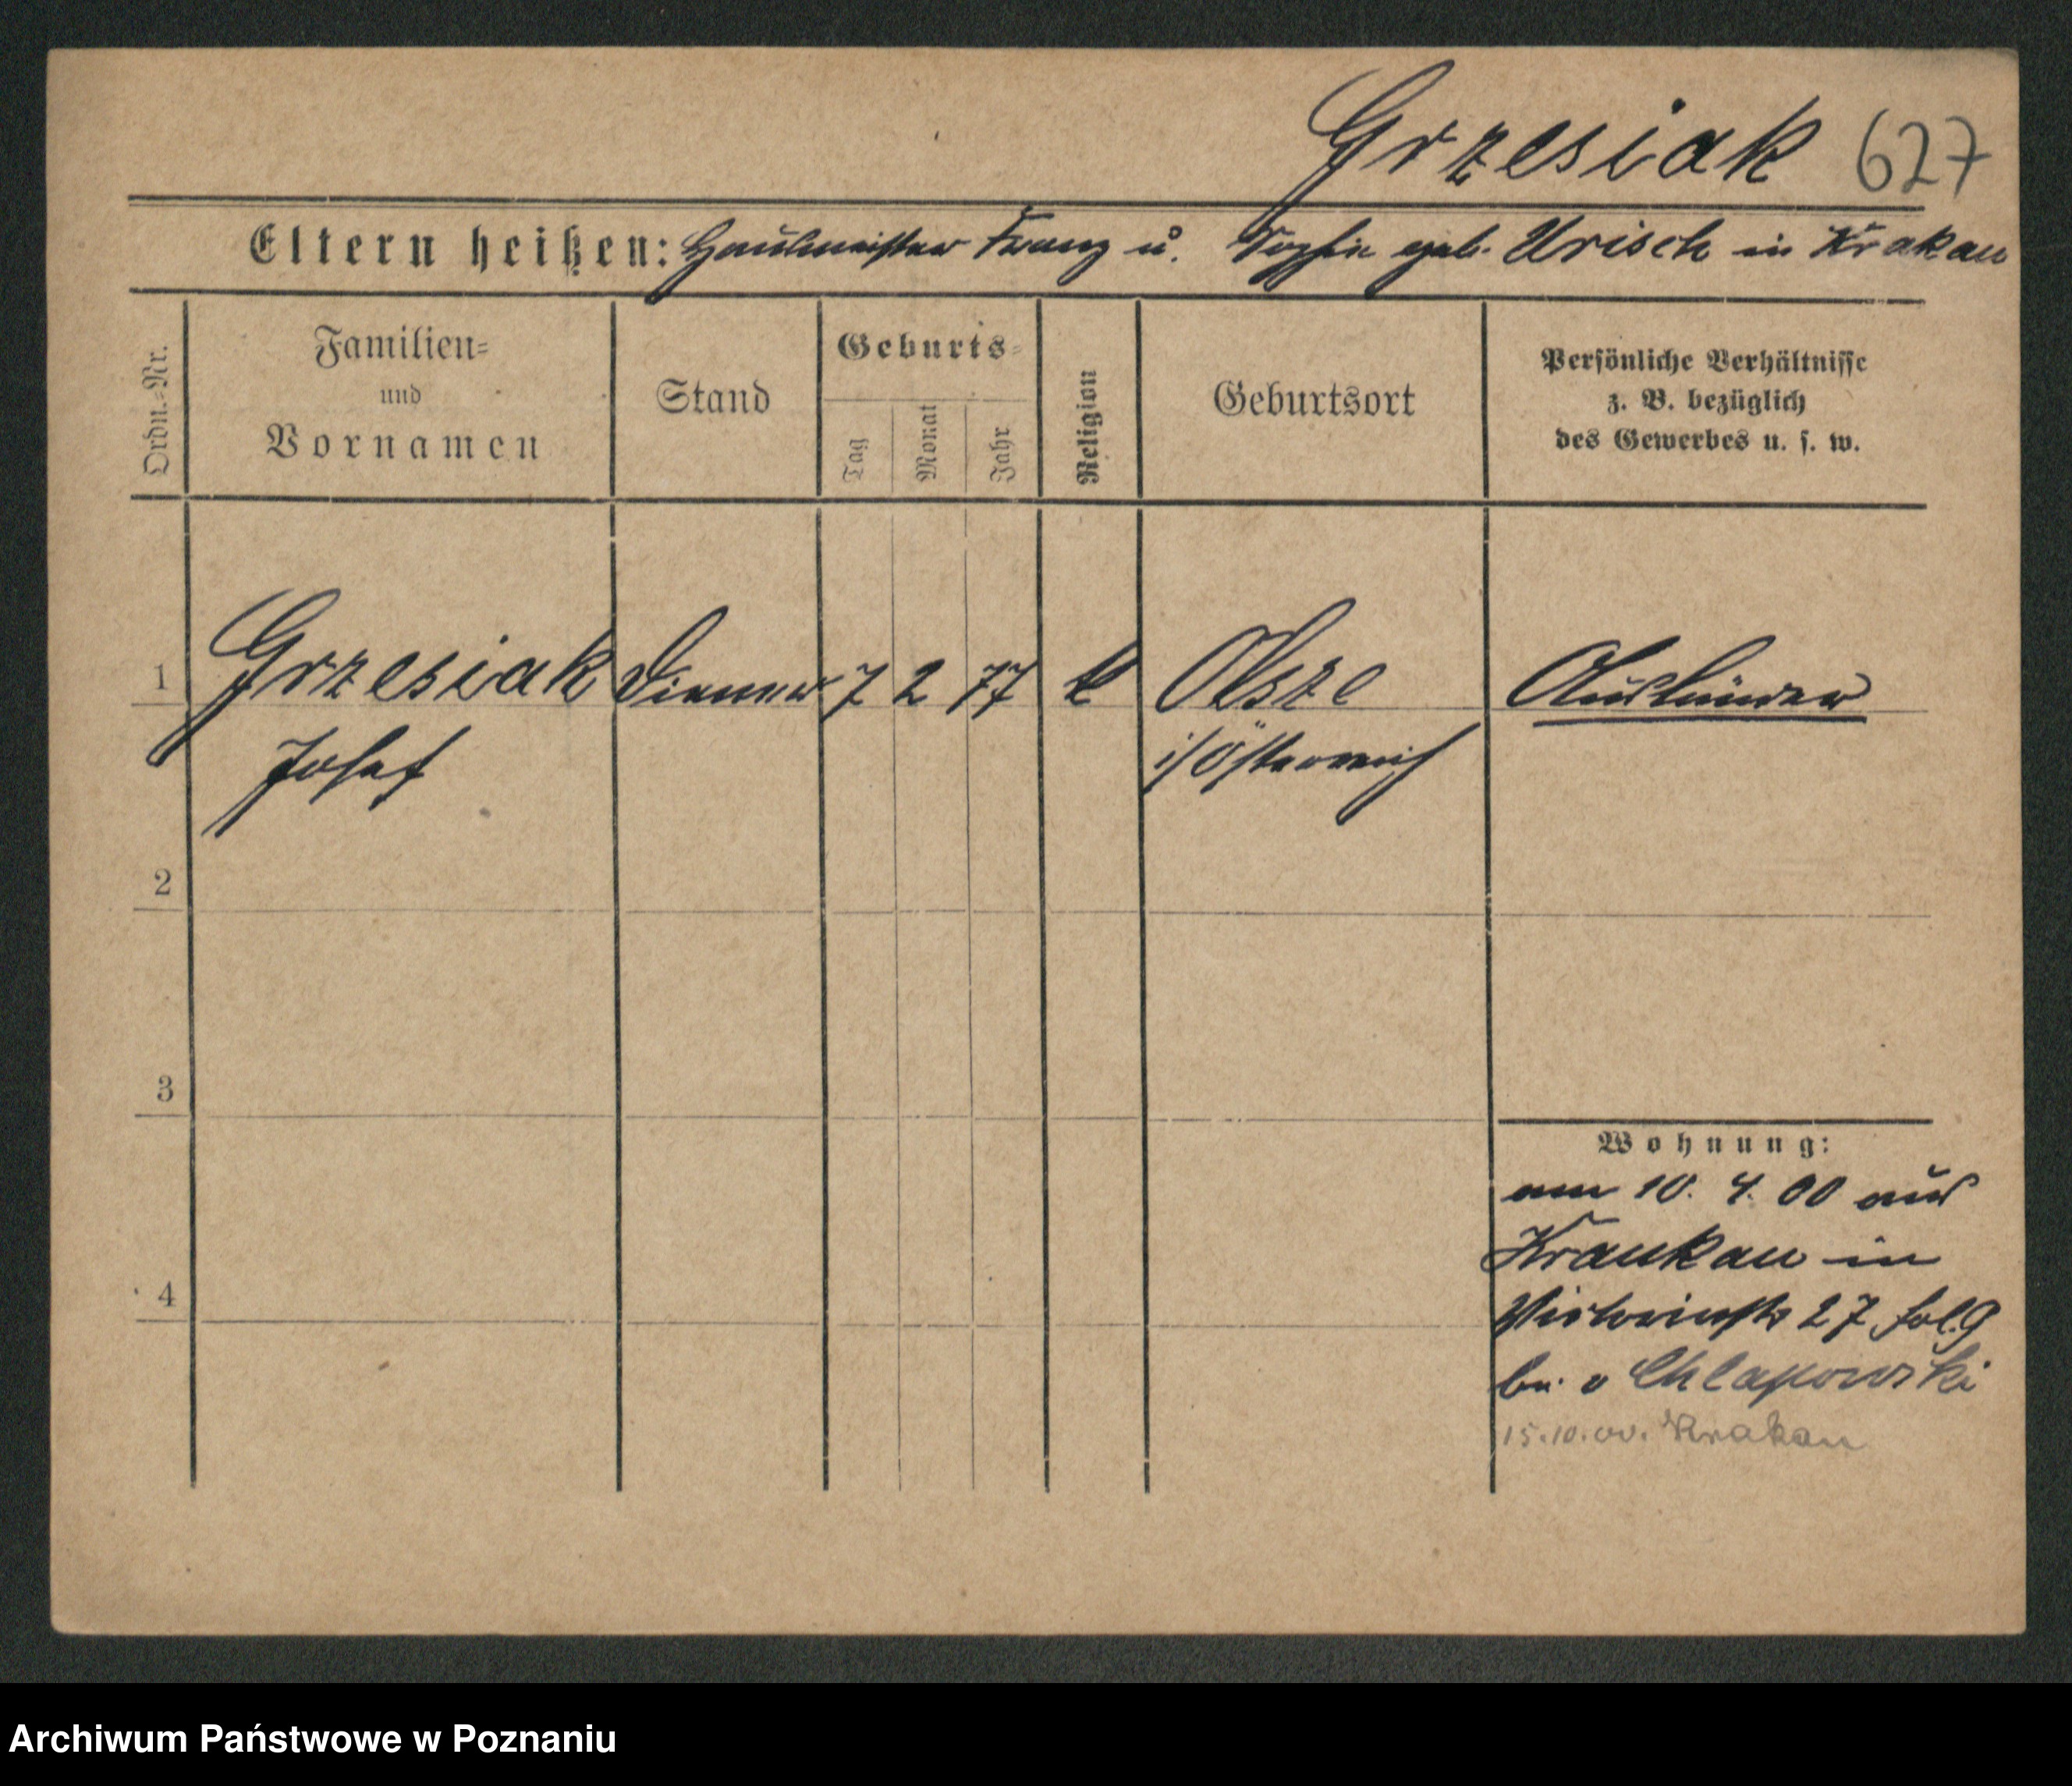 Grzesiak 627
Eltern heißen: Hausmeister Franz u. Sophie geb. Urisch in Krakau
Ordn.-Nr.
Familien-
und
Vornamen
Stand
Geburts-
Tag
Monat
Jahr
Religion
Geburtsort
Persönliche Verhältnisse
z. B. bezüglich
des Gewerbes u. s. w.
1 Grzesiak Diener 7 2 77 k Olsze Ausländer
Josef i/Österreich
2
3
4
Wohnung:
am 10. 4. 00 aus
Kraukau in
Victoriastr 27 fol. 9
bei v Chlapowski
15.10.00. Krakau
Archiwum Państwowe w Poznaniu